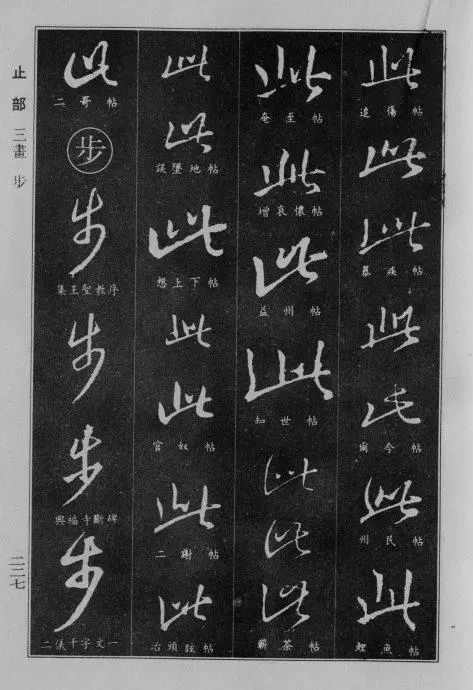 此
追傷帖
此
此
暴疾帖
此
此
爾今帖
此
州民帖
此
鯉魚帖
此
奄至帖
此
增哀懷帖
此
益州帖
此
知世帖
此
此
此
蘄茶帖
此
此
誤墜地帖
此
想上下帖
此
此
官奴帖
此
二謝帖
此
治頭眩帖
此
二哥帖
步
步
集王聖教序
步
步
興福寺斷碑
步
二儀千字文一
止部 三畫 步
二二七